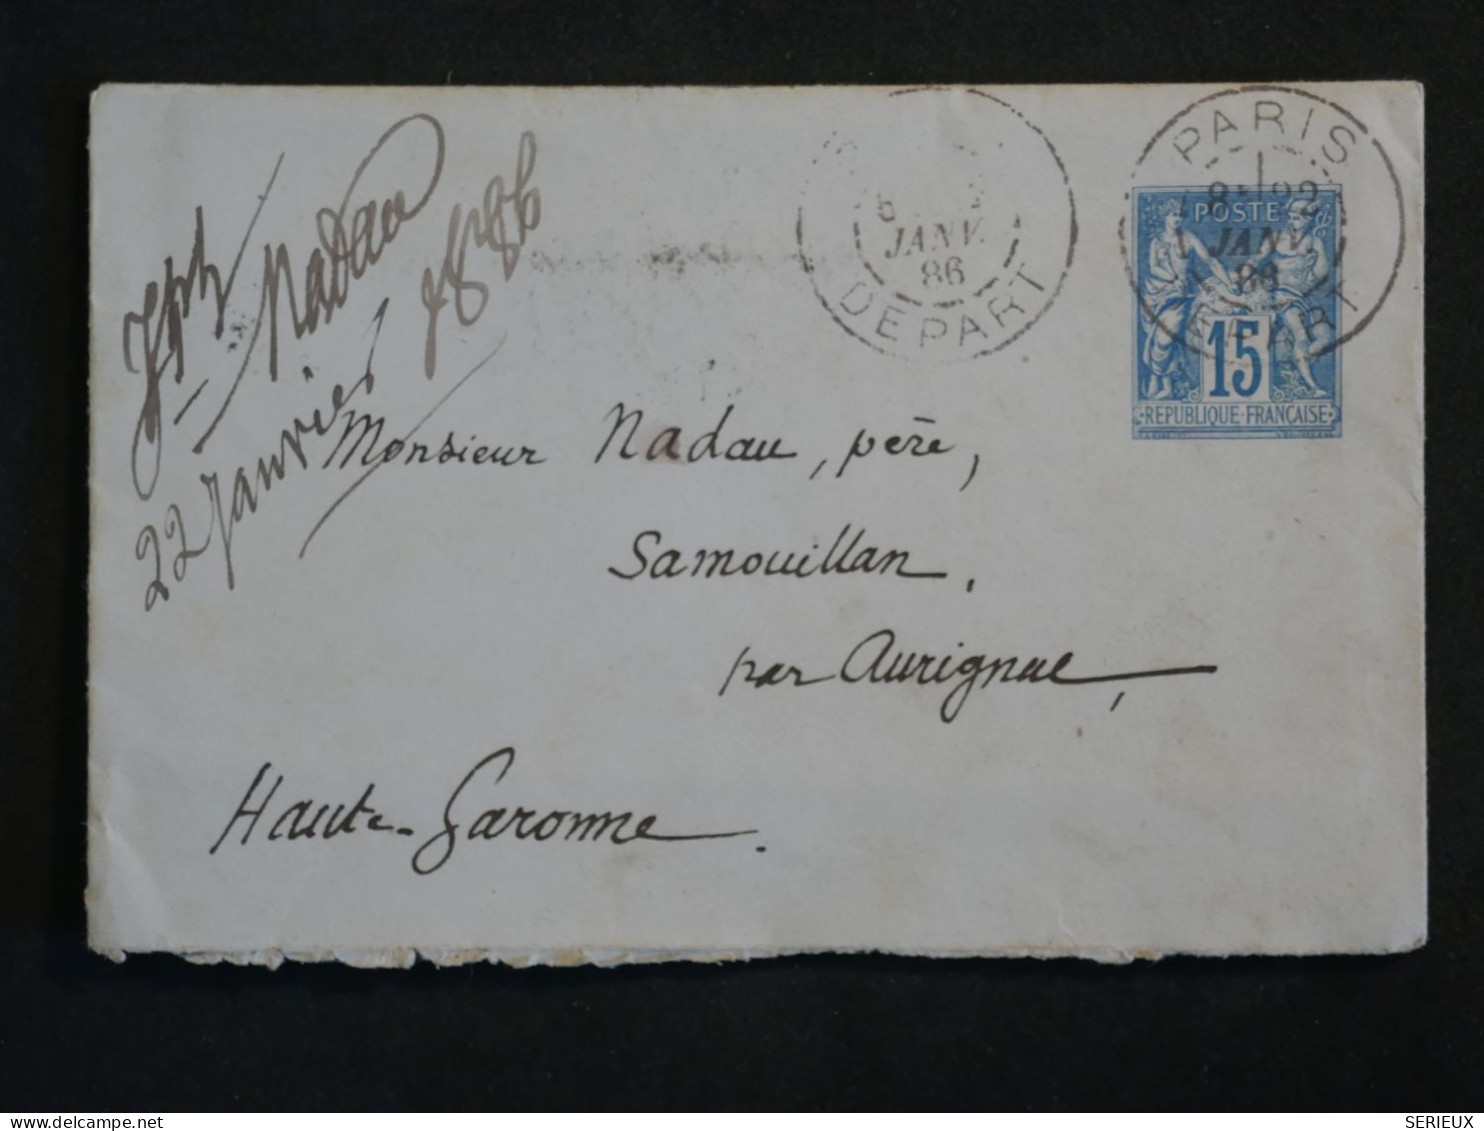 Jph Nadau
22 Janvier 1886
JANV.
86
DEPART
PARIS
8E 22
JANV.
86
DEPART
POSTE
15
REPUBLIQUE·FRANÇAISE
Monsieur Nadau, père,
Samouillan,
par Aurignac,
Haute-Garonne.
SERIEUX